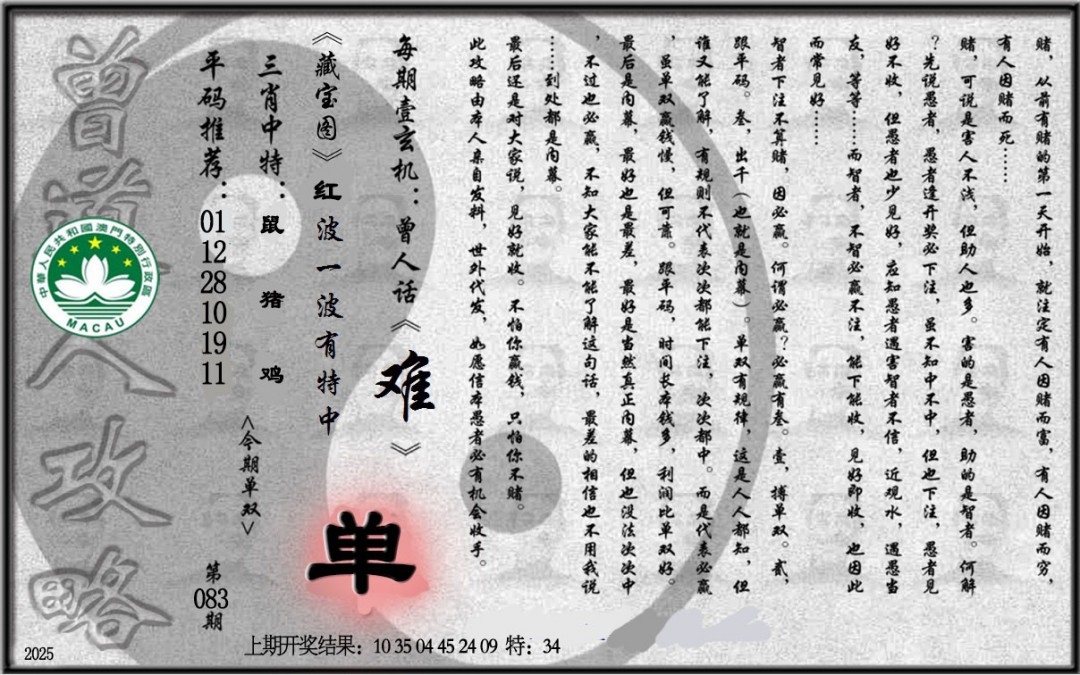 赌，从前有赌的第一天开始，就注定有人因赌而富，有人因赌而穷，
有人因赌而死……
赌，可说是害人不浅，但助人也多。害的是愚者，助的是智者。何解
？先说愚者，愚者逢开奖必下注，虽不知中不中，但也下注，愚者见
好不收，但愚者也少见好，应知愚者遇害智者不信，近观水，遇愚当
友，等等……而智者，不智必赢不注，能下能收，见好即收，也因此
而常见好……
智者下注不算赌，因必赢。何谓必赢？必赢有叁。壹，搏单双。贰，
跟平码。叁，出千（也就是内幕）。单双有规律，这是人人都知，但
谁又能了解，有规则不代表次次都能下注，次次都中。而是代表必赢
，虽单双赢钱慢，但可靠。跟平码，时间长本钱多，利润比单双好。
最后是内幕，最好也是最差，最好是当然真正内幕，但也没法次次中
，不过也必赢，不知大家能不能了解这句话，最差的相信也不用我说
……到处都是内幕。
最后还是对大家说，见好就收。不怕你赢钱，只怕你不赌。
此攻略由本人亲自发料，世外代发，如愿信本愚者必有机会收手。
每期壹玄机：曾人话《难》
《藏宝图》红波一波有特中
单
三肖中特：鼠 猪 鸡
<今期单双>
平码推荐：01 12 28 10 19 11
第083期
曾道人攻略
中華人民共和國澳門特別行政區
MACAU
2025
上期开奖结果：10 35 04 45 24 09 特：34